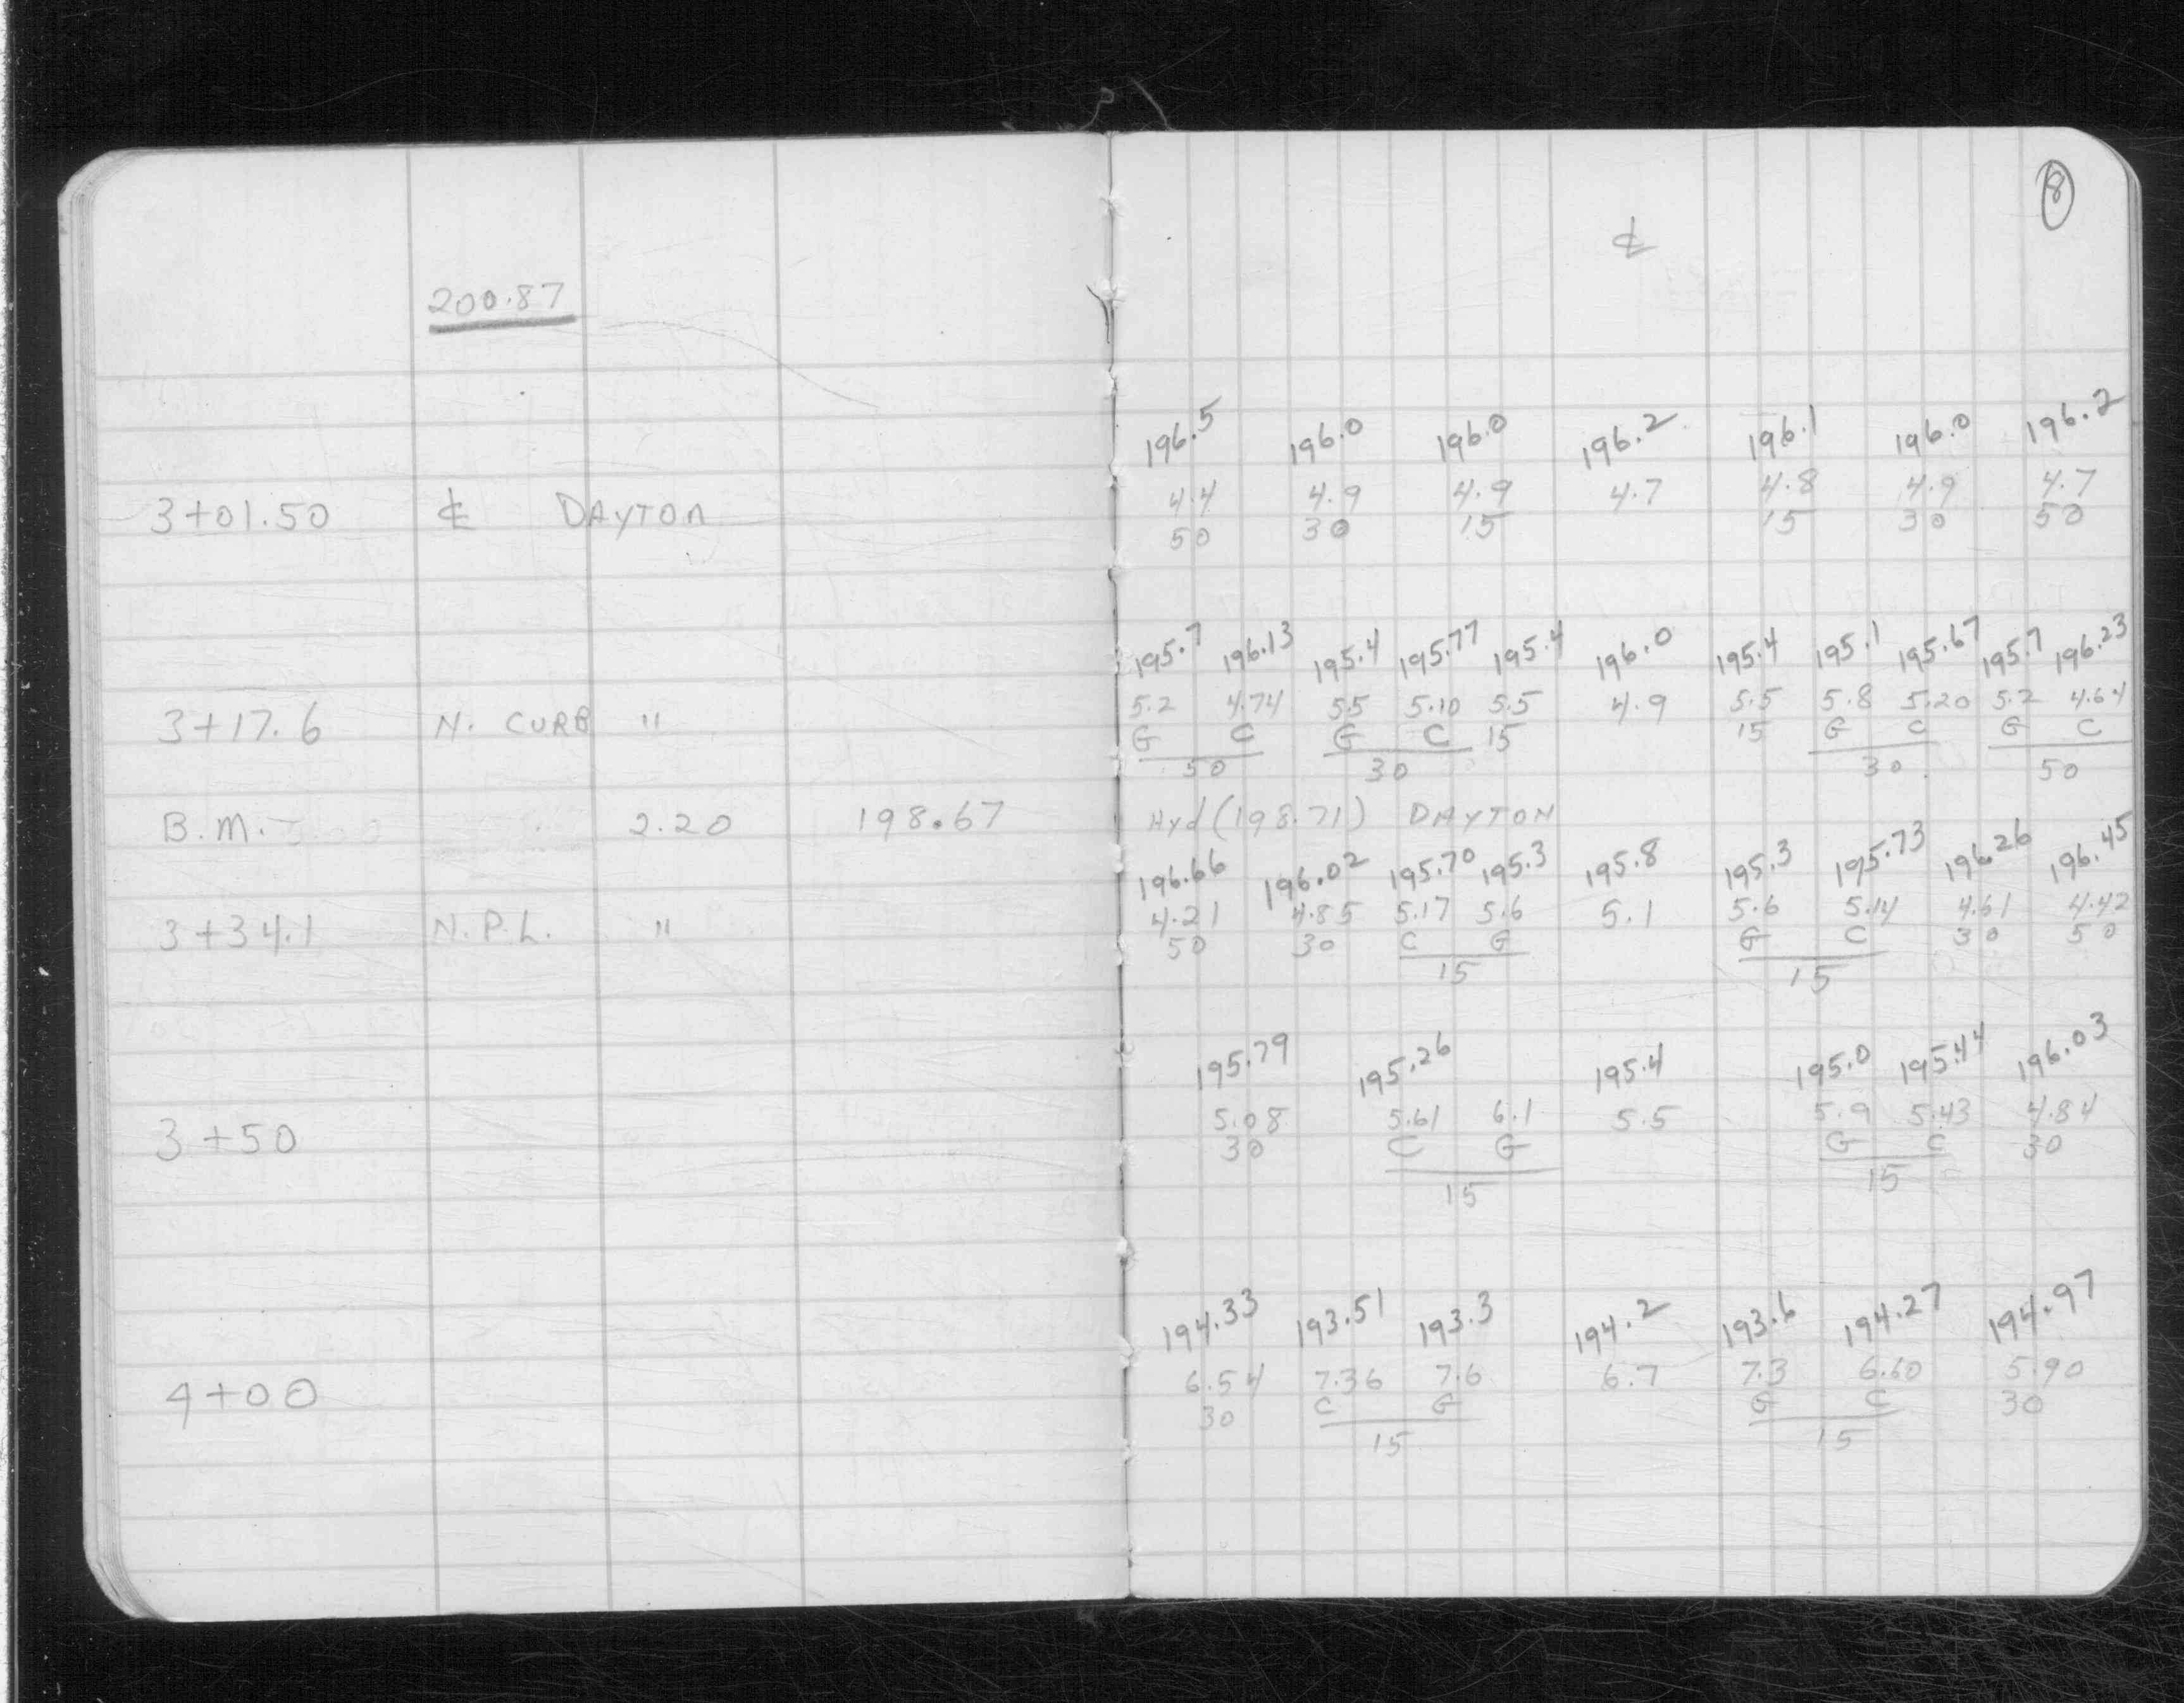 8
℄
200.87
196.5 196.0 196.0 196.2 196.1 196.0 196.2
3+01.50 ℄ DAYTON 4.4 4.9 4.9 4.7 4.8 4.9 4.7
50 30 15 15 30 50
195.7 196.13 195.4 195.77 195.4 196.0 195.4 195.1 195.67 195.7 196.23
3+17.6 N. CURB " 5.2 4.74 5.5 5.10 5.5 4.9 5.5 5.8 5.20 5.2 4.64
G C G C 15 15 G C G C
50 30 30 50
B.M. 2.20 198.67 Hyd (198.71) DAYTON
196.66 196.02 195.70 195.3 195.8 195.3 195.73 196.26 196.45
3+34.1 N.P.L. " 4.21 4.85 5.17 5.6 5.1 5.6 5.14 4.61 4.42
50 30 C G G C 30 50
15 15
195.79 195.26 195.4 195.0 195.44 196.03
3+50 5.08 5.61 6.1 5.5 5.9 5.43 4.84
30 C G G C 30
15 15
194.33 193.51 193.3 194.2 193.6 194.27 194.97
4+00 6.54 7.36 7.6 6.7 7.3 6.60 5.90
30 C G G C 30
15 15